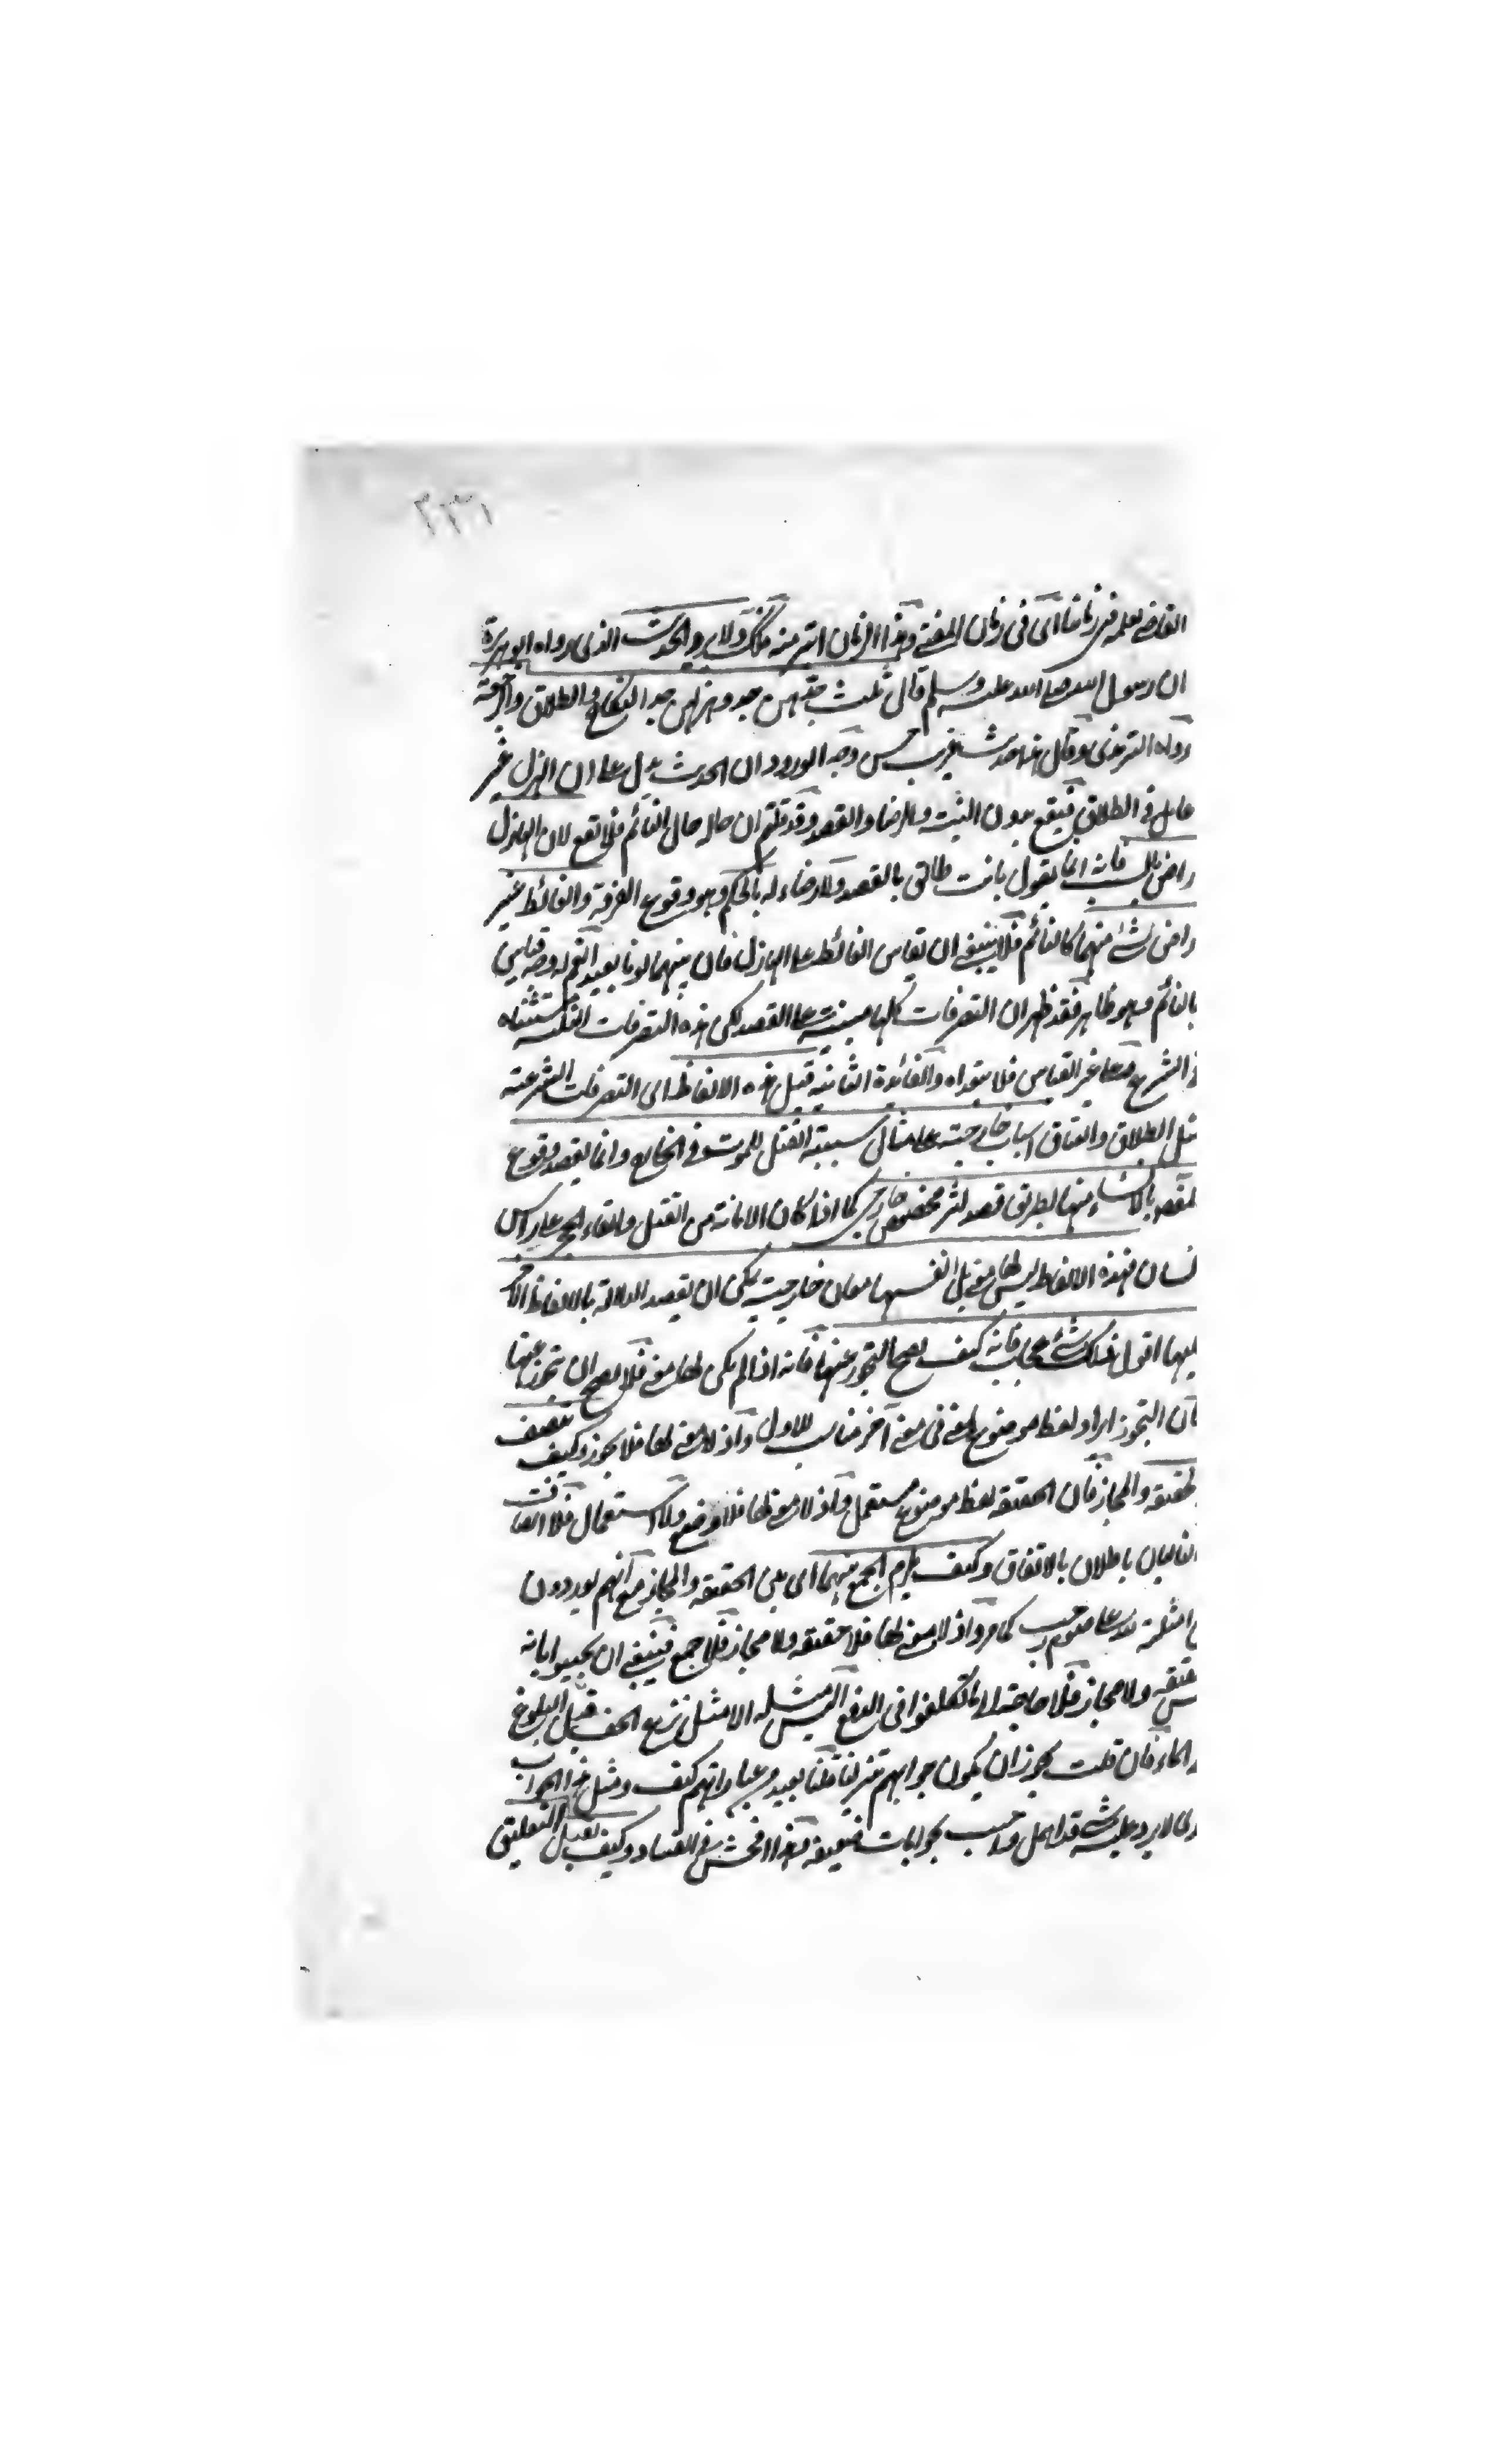 ٢٣١
القاضي بعلمه في زماننا اى في زمان المفتي وهذا الزمان اشر منه ولا يرد الحديث الذى رواه ابو هريرة
ان رسول الله صلى الله عليه وسلم قال ثلث جدهن جد وهزلهن جد النكاح والطلاق والرجعة
رواه الترمذى وقال هذا حديث غريب حسن وجه الورود ان الحديث يدل على ان الهزل غير
عامل في الطلاق فيقع بدون النية والرضاء والقصد وقد قلتم ان حاله حال النائم فلا تقع لان الهازل
راض بالسبب فانه انما يقول بانت طالق بالقصد ولا رضاء له بالحكم وهو وقوع الفرقة والغالط غير
راض بشئ منهما كالنائم فلا ينبغي ان يقاس الغالط على الهازل فان بينهما بونا بعيدا نعم له وجه قياس
بالنائم وهو ظاهر فقد ظهر ان التصرفات كلها مبنية على القصد لكن هذه التصرفات الثلثة مستثناه
الشرع على غير القياس فلا يتعداه والفائدة الثانية قيل هذه الالفاظ اى التصرفات الشرعية
مثل الطلاق والعتاق اسباب خارجية على مثال سببية القتل للموت في الخارج وانما يقصد وقوع
بالانشاء منها بطريق قصد اثر مخصوص خارجى كما اذا كان الاماتة من القتل والقاء الحجر على راس
انسان فهذه الالفاظ ليس لها معنى بل انفسها معان خارجية يمكن ان يقصد الدلالة بالالفاظ الاخر
عليها اقول ذلك شئ عجاب فانه كيف يصح التجوز عنها فانه اذا لم يكن لها معنى فلا يصح ان تجوز عنها
فان التجوز ايراد لفظ موضوع لمعنى في معنى آخر مناسب للاول واذ لا معنى لها فلا يجوز وكيف يتصف
بالحقيقة والمجاز فان الحقيقة لفظ موضوع مستعمل واذ لا معنى لها فلا وضع ولا استعمال فلا اتصاف
والتاليان باطلان بالاتفاق وكيف يلزم الجمع بينهما اى بين الحقيقة والمجاز مع انهم يوردون
امثلة كما مر واذ لا معنى لها فلا حقيقة ولا مجاز فلا جمع فينبغي ان يجيبوا بانه
حقيقة ولا مجاز فلا حاجة الى ما تكلفوا في الدفع اليس مثله الا مثل نزع الخف قبل البلوغ
الماء فان قلت يجوز ان يكون جوابهم تنزليا قلنا بعيد من عباراتهم كيف ومثل هذا الجواب
لا يرد عليه شئ قد اهمل واجيب بجوابات ضعيفة هذا افحش في الفساد وكيف يقبل التعليق